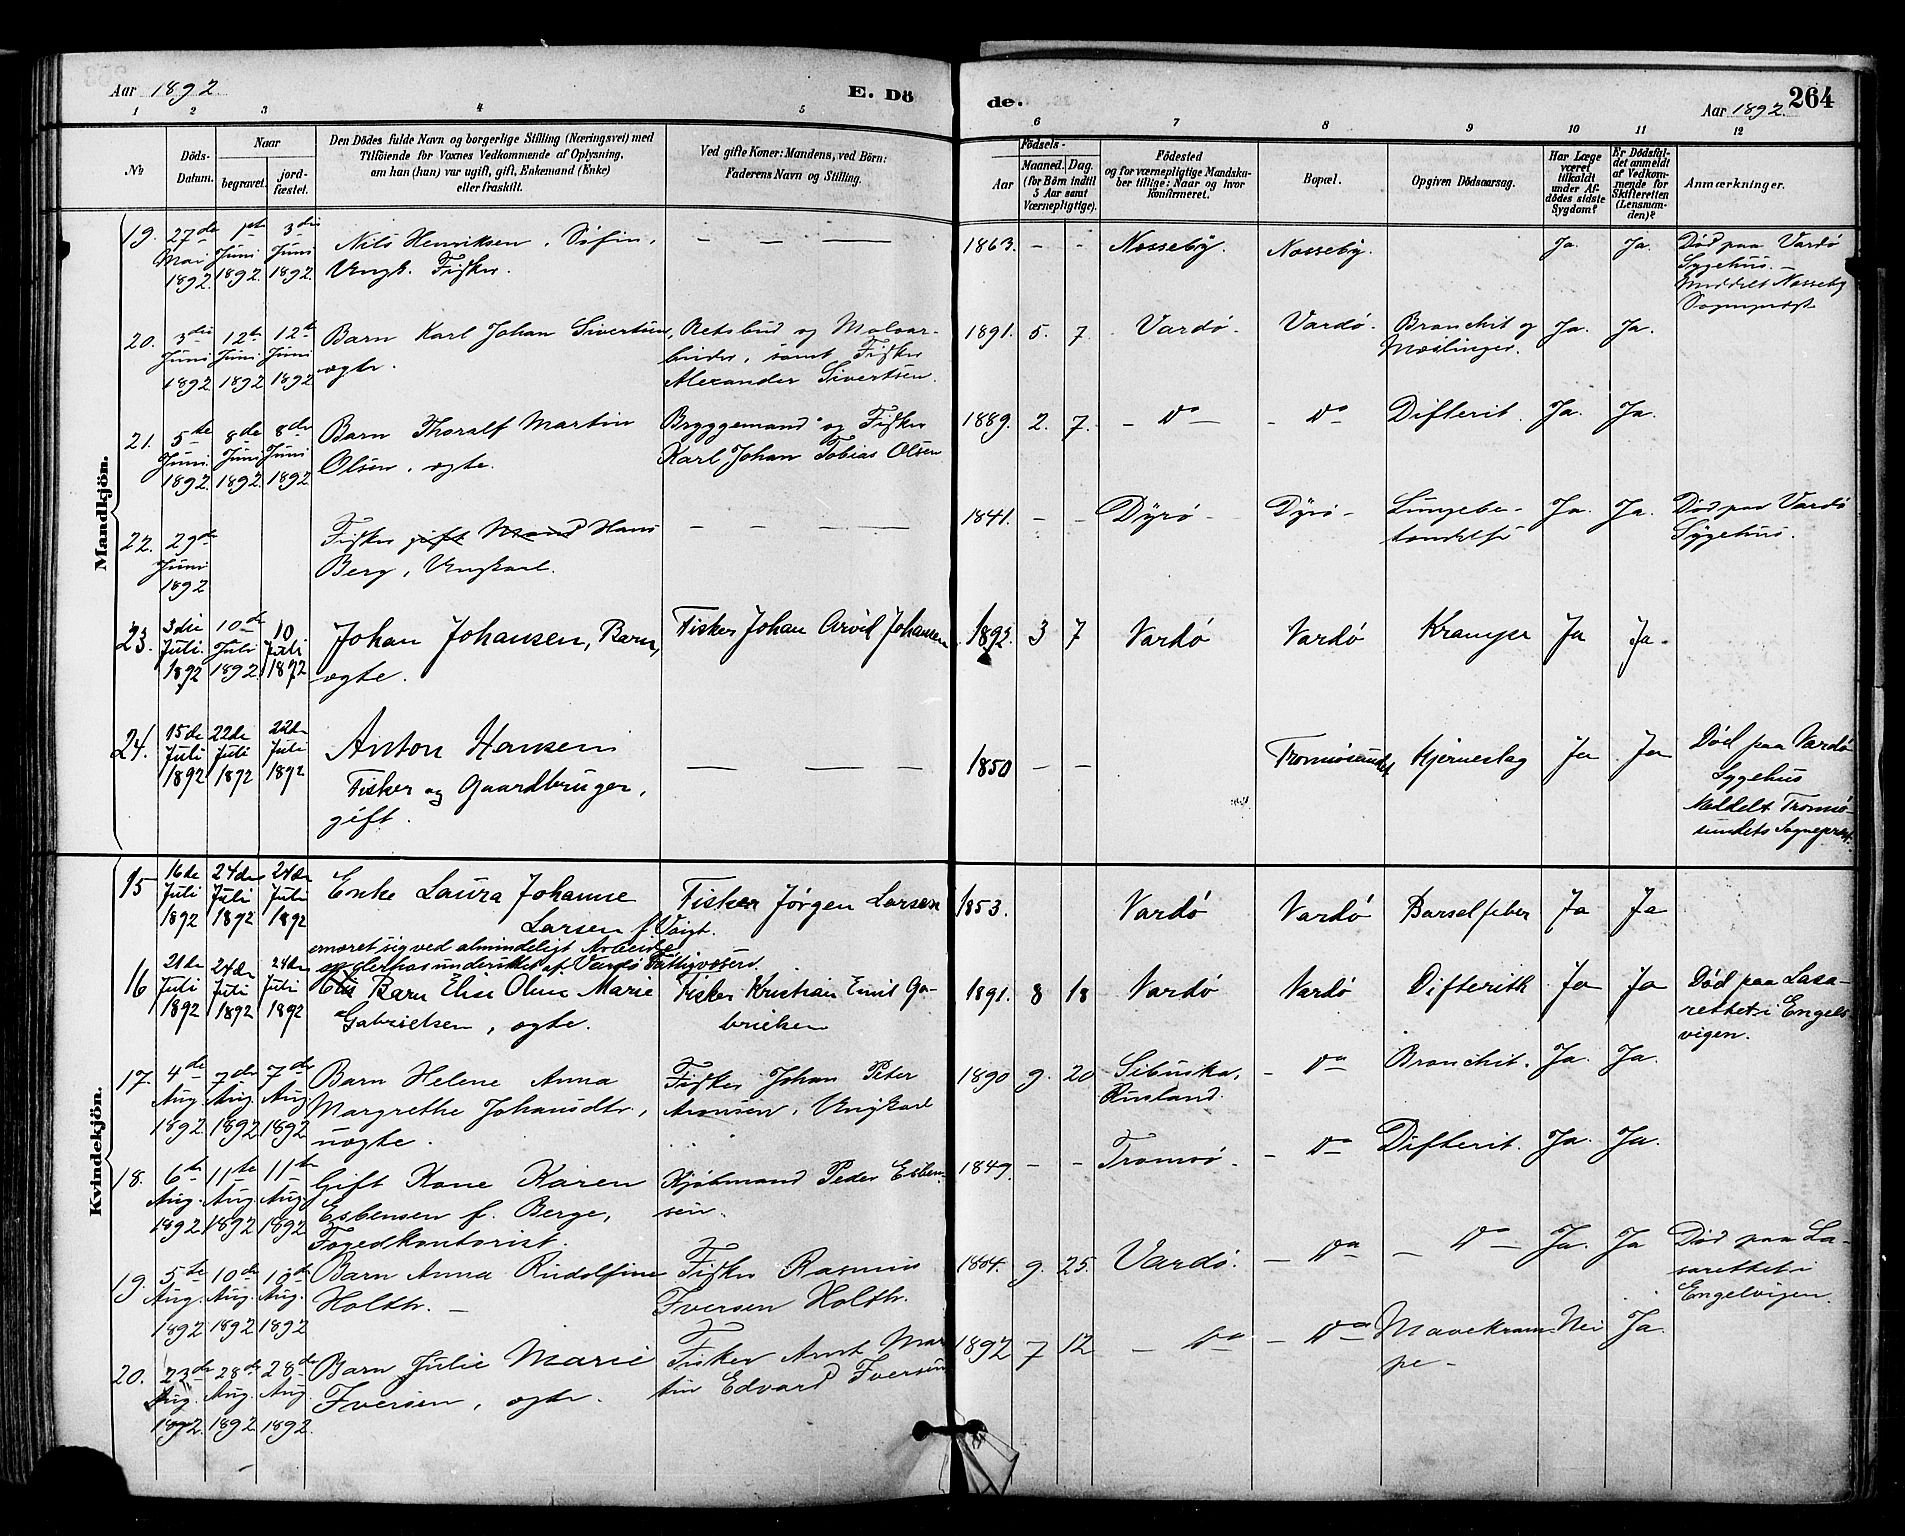 Aar 1892.
E. Dö
de.
Aar 1892.
264
1 2 3 4 5
6 7 8 9 10 11 12
№
Döds-
Datum.
Naar
begravet.
jord-
fæstet.
Den Dödes fulde Navn og borgerlige Stilling (Næringsvei) med
Tilföiende for Voxnes Vedkommende af Oplysning,
om han (hun) var ugift, gift, Enkemand (Enke)
eller fraskilt.
Ved gifte Koner: Mandens, ved Börn:
Faderens Navn og Stilling.
Födsels-
Aar
Maaned. Dag.
(for Börn indtil
5 Aar samt
Værnepligtige).
Födested
og for værnepligtige Mandska-
ber tillige: Naar og hvor
konfirmeret.
Bopæl.
Opgiven Dödsaarsag.
Har Læge
været
tilkaldt
under Af-
dödes sidste
Sygdom?
Er Dödsfal-
det anmeldt
af Vedkom-
mende for
Skifteretten
(Lensman-
den)?
Anmærkninger.
Mandkjön.
19. 27de Mai 1892. 1ste Juni 1892. 3die Juni 1892.
Nils Henriksen, Søfin,
Ungk. Fisker.
— — —
1863. - - Nesseby. Nesseby. Ja. Ja.
Død paa Vardø
Sygehus. —
Meddelt Nesseby
Sogneprest
20. 3die Juni 1892 12te Juni 1892 12te Juni 1892
Barn Karl Johan Sivertsen,
ægte.
Retsbud og Malvar-
binder, samt Fisker
Alexander Sivertsen.
1891. 5. 7. Vardø. Vardø. Bronchit og
Mæslinger. Ja. Ja.
21. 5te Juni 1892. 8de Juni 1892. 8de Juni 1892
Barn Thoralf Martin
Olsen, ægte.
Bryggemand og Fisker
Karl Johan Tobias Olsen
1889. 2. 7. — Do — - Do Difterit. Ja. Ja.
22. 29de Juni 1892
Fisker gift Mand Hans
Berg, Ungkarl.
— — —
1841. - - Dyrø - Dyrø - Lungebe-
tændelse Ja. Ja.
Død paa Vardø
Sygehus.
23. 3die Juli. 1892 10de Juli 1892. 10 Juli 1892
Johan Johansen, Barn,
ægte.
Fisker Johan Arvid Johansen
1892. 3 7 Vardø Vardø Kramper Ja Ja.
24. 15de Juli 1892 22de Juli 1892 22de Juli 1892
Anton Hansen
Fisker og Gaardbruger,
gift.
— — —
1850 - - Tromsøsundet Hjerneslag Ja Ja
Død paa Vardø
Sygehus
Meddelt Tromsø-
sundets Sogneprest.
Kvindekjön.
15 16de Juli 1892 24de Juli 1892 24de Juli 1892
Enke Laura Johanne
Larsen f. Voigt.
ernæret sig ved almindeligt Arbeide
og derhos understøttet af Vardø Fattigvæsen.
Fisker Jørgen Larsen
1853. Vardø Vardø Barselfeber Ja Ja
16 21de Juli 1892 24de Juli 1892 24de Juli 1892
Barn Elise Oline Marie
Gabrielsen, ægte.
Fisker Kristian Emil Ga-
brielsen
1891. 8 18 Vardø Vardø Difterith Ja Ja
Død paa Lasa-
rettet i Engels-
vigen.
17. 4de Aug. 1892. 7de Aug. 1892 7de Aug. 1892
Barn Helene Anna
Margrethe Johansdtr,
uægte.
Fisker Johan Peter
Aronsen, Ungkarl
1890 9. 20 Sibuska,
Rusland. - Do Bronchit. Ja. Ja.
18. 6te Aug. 1892 11te Aug. 1892 11te Aug. 1892
Gift Kone Karen
Esbensen f. Berge,
Fogedkontorist.
Kjøbmand Peder Esben-
sen.
1849. - - Tromsø. - Do Difterit. Ja. Ja.
19. 5te Aug. 1892 10de Aug. 1892 10de Aug. 1892
Barn Anna Rudolfine
Holth. —
Fisker Rasmus
Iversen Holth.
1884. 9. 25. Vardø. — Do — Do — Ja. Ja
Død paa La-
sarettet i
Engelvigen.
20. 23de Aug. 1892. 28de Aug. 1892 28de Aug 1892.
Barn Julie Marie
Iversen, ægte.
Fisker Arnt Mar-
tin Edvard Iversen
1892 7 12 — Do — Do Mavekram-
pe — Nei Ja.